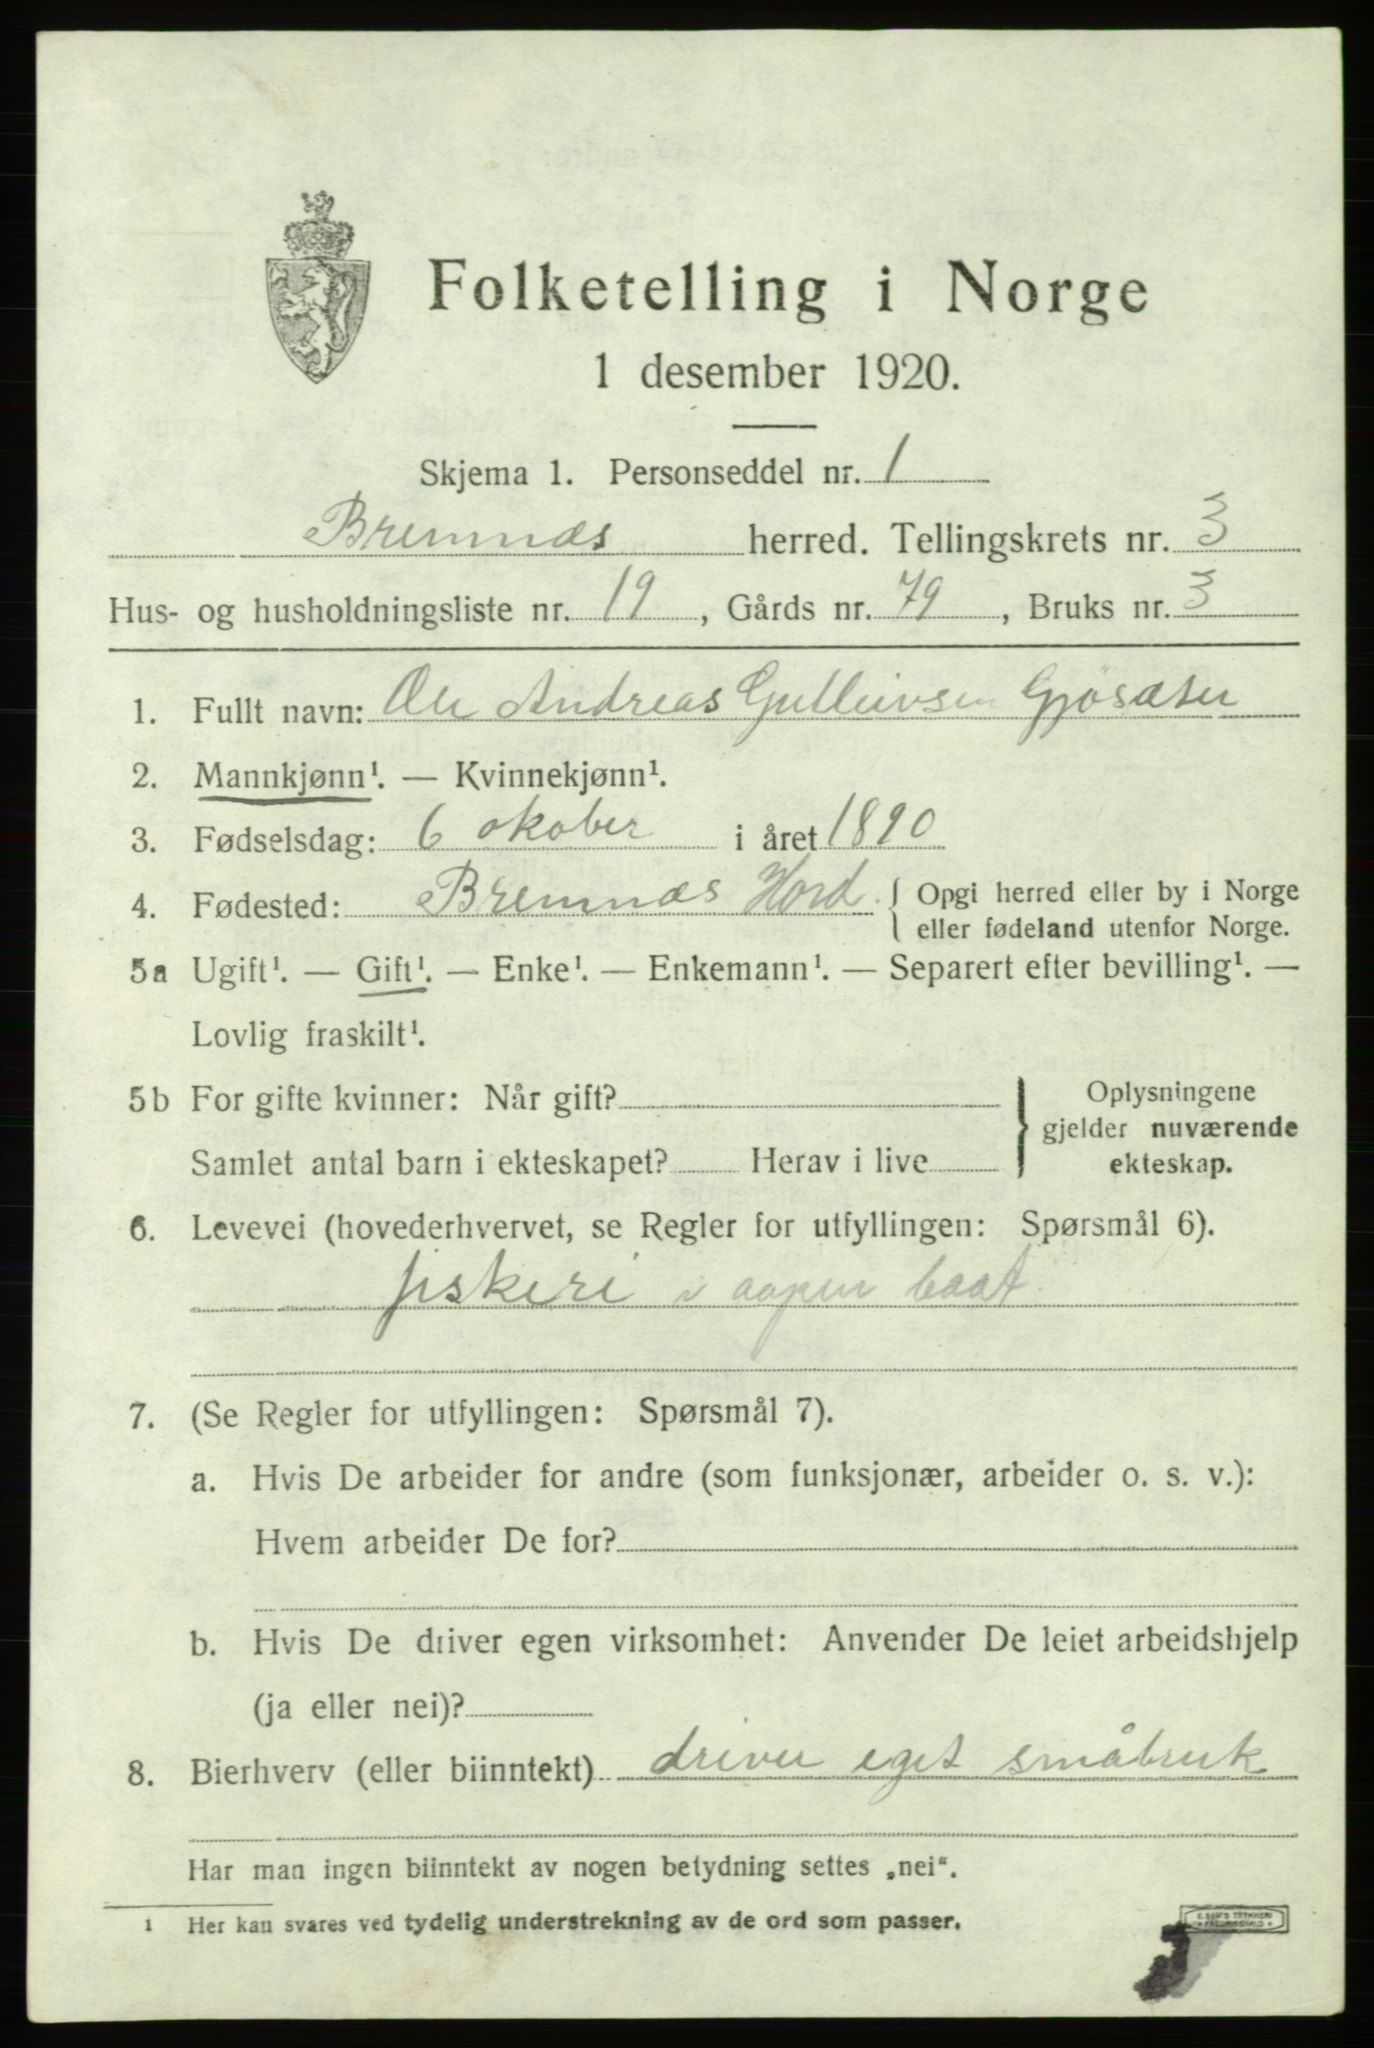 Folketelling i Norge
1 desember 1920.
Skjema 1. Personseddel nr. 1
Bremnæs herred. Tellingskrets nr. 3
Hus- og husholdningsliste nr. 19, Gårds nr. 79, Bruks nr. 3
1. Fullt navn: Ole Andreas Gulleivsen Gjøsæter
2. Mannkjønn¹. — Kvinnekjønn¹.
3. Fødselsdag: 6 okober i året 1890
4. Fødested: Bremnæs Hord. { Opgi herred eller by i Norge
eller fødeland utenfor Norge.
5a Ugift¹. — Gift¹. — Enke¹. — Enkemann¹. — Separert efter bevilling¹. —
Lovlig fraskilt¹.
5b For gifte kvinner: Når gift? } Oplysningene
gjelder nuværende
Samlet antal barn i ekteskapet? Herav i live ekteskap.
6. Levevei (hovederhvervet, se Regler for utfyllingen: Spørsmål 6).
fiskeri i aapen baat.
7. (Se Regler for utfyllingen: Spørsmål 7).
a. Hvis De arbeider for andre (som funksjonær, arbeider o. s. v.):
Hvem arbeider De for?
b. Hvis De driver egen virksomhet: Anvender De leiet arbeidshjelp
(ja eller nei)?
8. Bierhverv (eller biinntekt) driver eget småbruk
Har man ingen biinntekt av nogen betydning settes „nei“.
1 Her kan svares ved tydelig understrekning av de ord som passer.